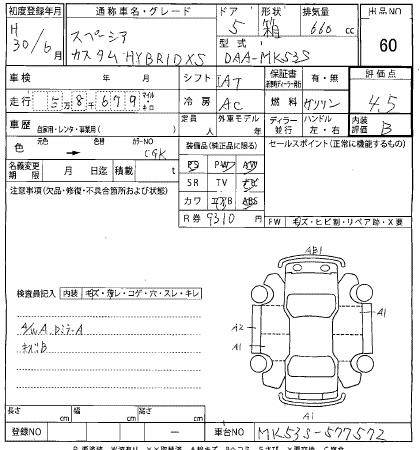 初度登録年月 通称車名・グレード ドア 形状 排気量 出品NO
H 30/6月 スペーシア カスタム HYBRID XS 5 箱 660 cc 60
型式 DAA-MK53S
車検 年 月 シフト IAT 保証書 有・無 評価点
走行 5万8千679 マイル キロ 冷房 AC 燃料 ガソリン 4.5
車歴 自家用・レンタ・事業用( ) 定員 人 外車モデル 年 ディーラー 並行 ハンドル 左・右 内装評価 B
色 元色 色替 カラーNO CGK 装備品(純正品に限る) セールスポイント(正常に機能するもの)
名義変更期限 月 日迄 積載 t PS PW AW
注意事項(欠品・修復・不具合箇所および状態) SR TV
カワ ABS
R券 9310 円 FW キズ・ヒビ割・リペア跡・X要
AE1
検査員記入 内装 キズ・薄レ・コゲ・穴・スレ・キレ
A/W A
キズB
A2 A1
A1
A1
長さ cm 幅 cm 高さ cm
登録NO ー 車台NO MK53S-577572